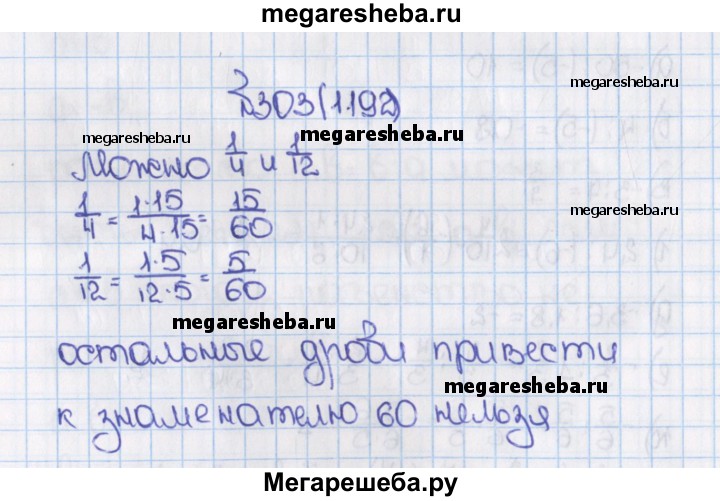 megaresheba.com
№303(1192)
megaresheba.com
megaresheba.com
megaresheba.com
Можно 1/4 и 1/12
1/4 = 1·15/4·15 = 15/60
megaresheba.com
1/12 = 1·5/12·5 = 5/60
megaresheba.com
остальные дроби привести
megaresheba.com
к знаменателю 60 нельзя
Мегарешеба.ру